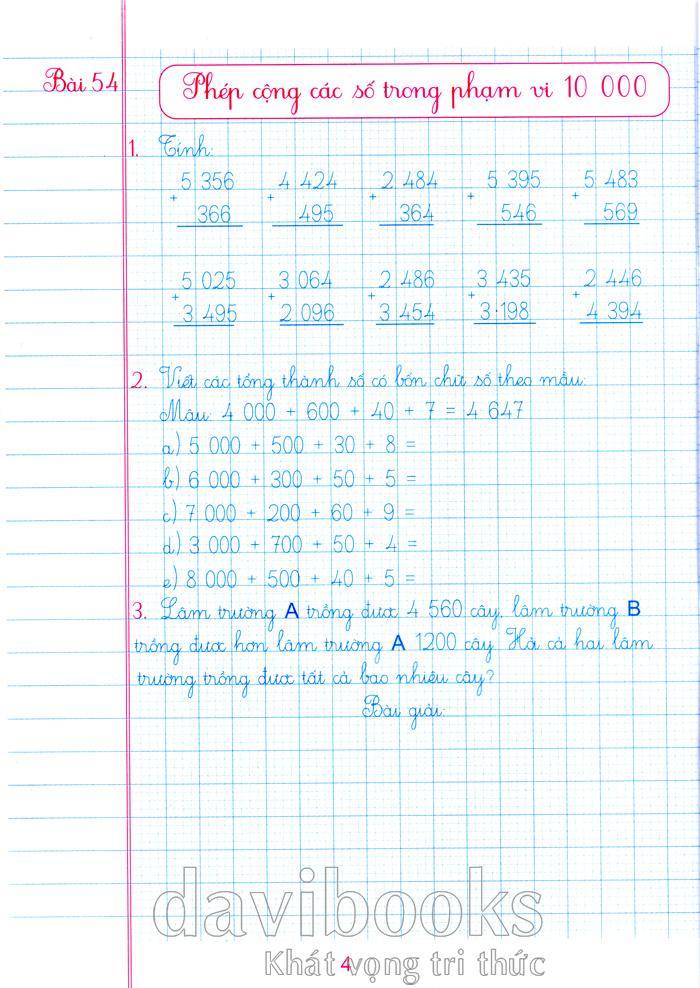 Bài 54
Phép cộng các số trong phạm vi 10 000
1. Tính:
5 356 4 424 2 484 5 395 5 483
+ + + + +
366 495 364 546 569
5 025 3 064 2 486 3 435 2 446
+ + + + +
3 495 2 096 3 454 3 198 4 394
2. Viết các tổng thành số có bốn chữ số theo mẫu:
Mẫu: 4 000 + 600 + 40 + 7 = 4 647
a) 5 000 + 500 + 30 + 8 =
b) 6 000 + 300 + 50 + 5 =
c) 7 000 + 200 + 60 + 9 =
d) 3 000 + 700 + 50 + 4 =
e) 8 000 + 500 + 40 + 5 =
3. Lâm trường A trồng được 4 560 cây, lâm trường B
trồng được hơn lâm trường A 1200 cây. Hỏi cả hai lâm
trường trồng được tất cả bao nhiêu cây?
Bài giải:
davibooks
Khát vọng tri thức
4